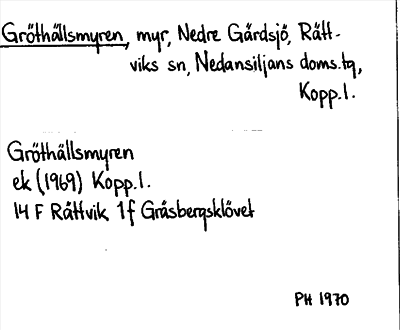 Gröthällsmyren, myr, Nedre Gärdsjö, Rätt-
viks sn, Nedansiljans doms.tg,
Kopp.l.
Gröthällsmyren
ek (1969) Kopp.l.
14 F Rättvik 1f Gråsbergsklövet
PH 1970